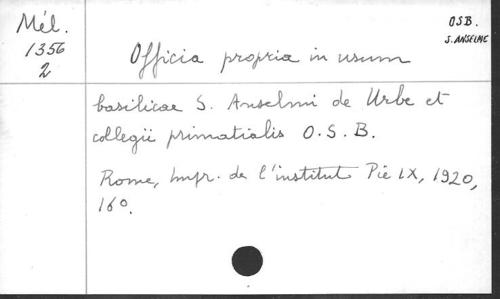 Mél.
1356
2
O.S.B.
S. ANSELME
Officia propria in usum
basilicae S. Anselmi de Urbe et
collegii primatialis O.S.B.
Rome, Impr. de l'institut Pie IX, 1920,
16º.